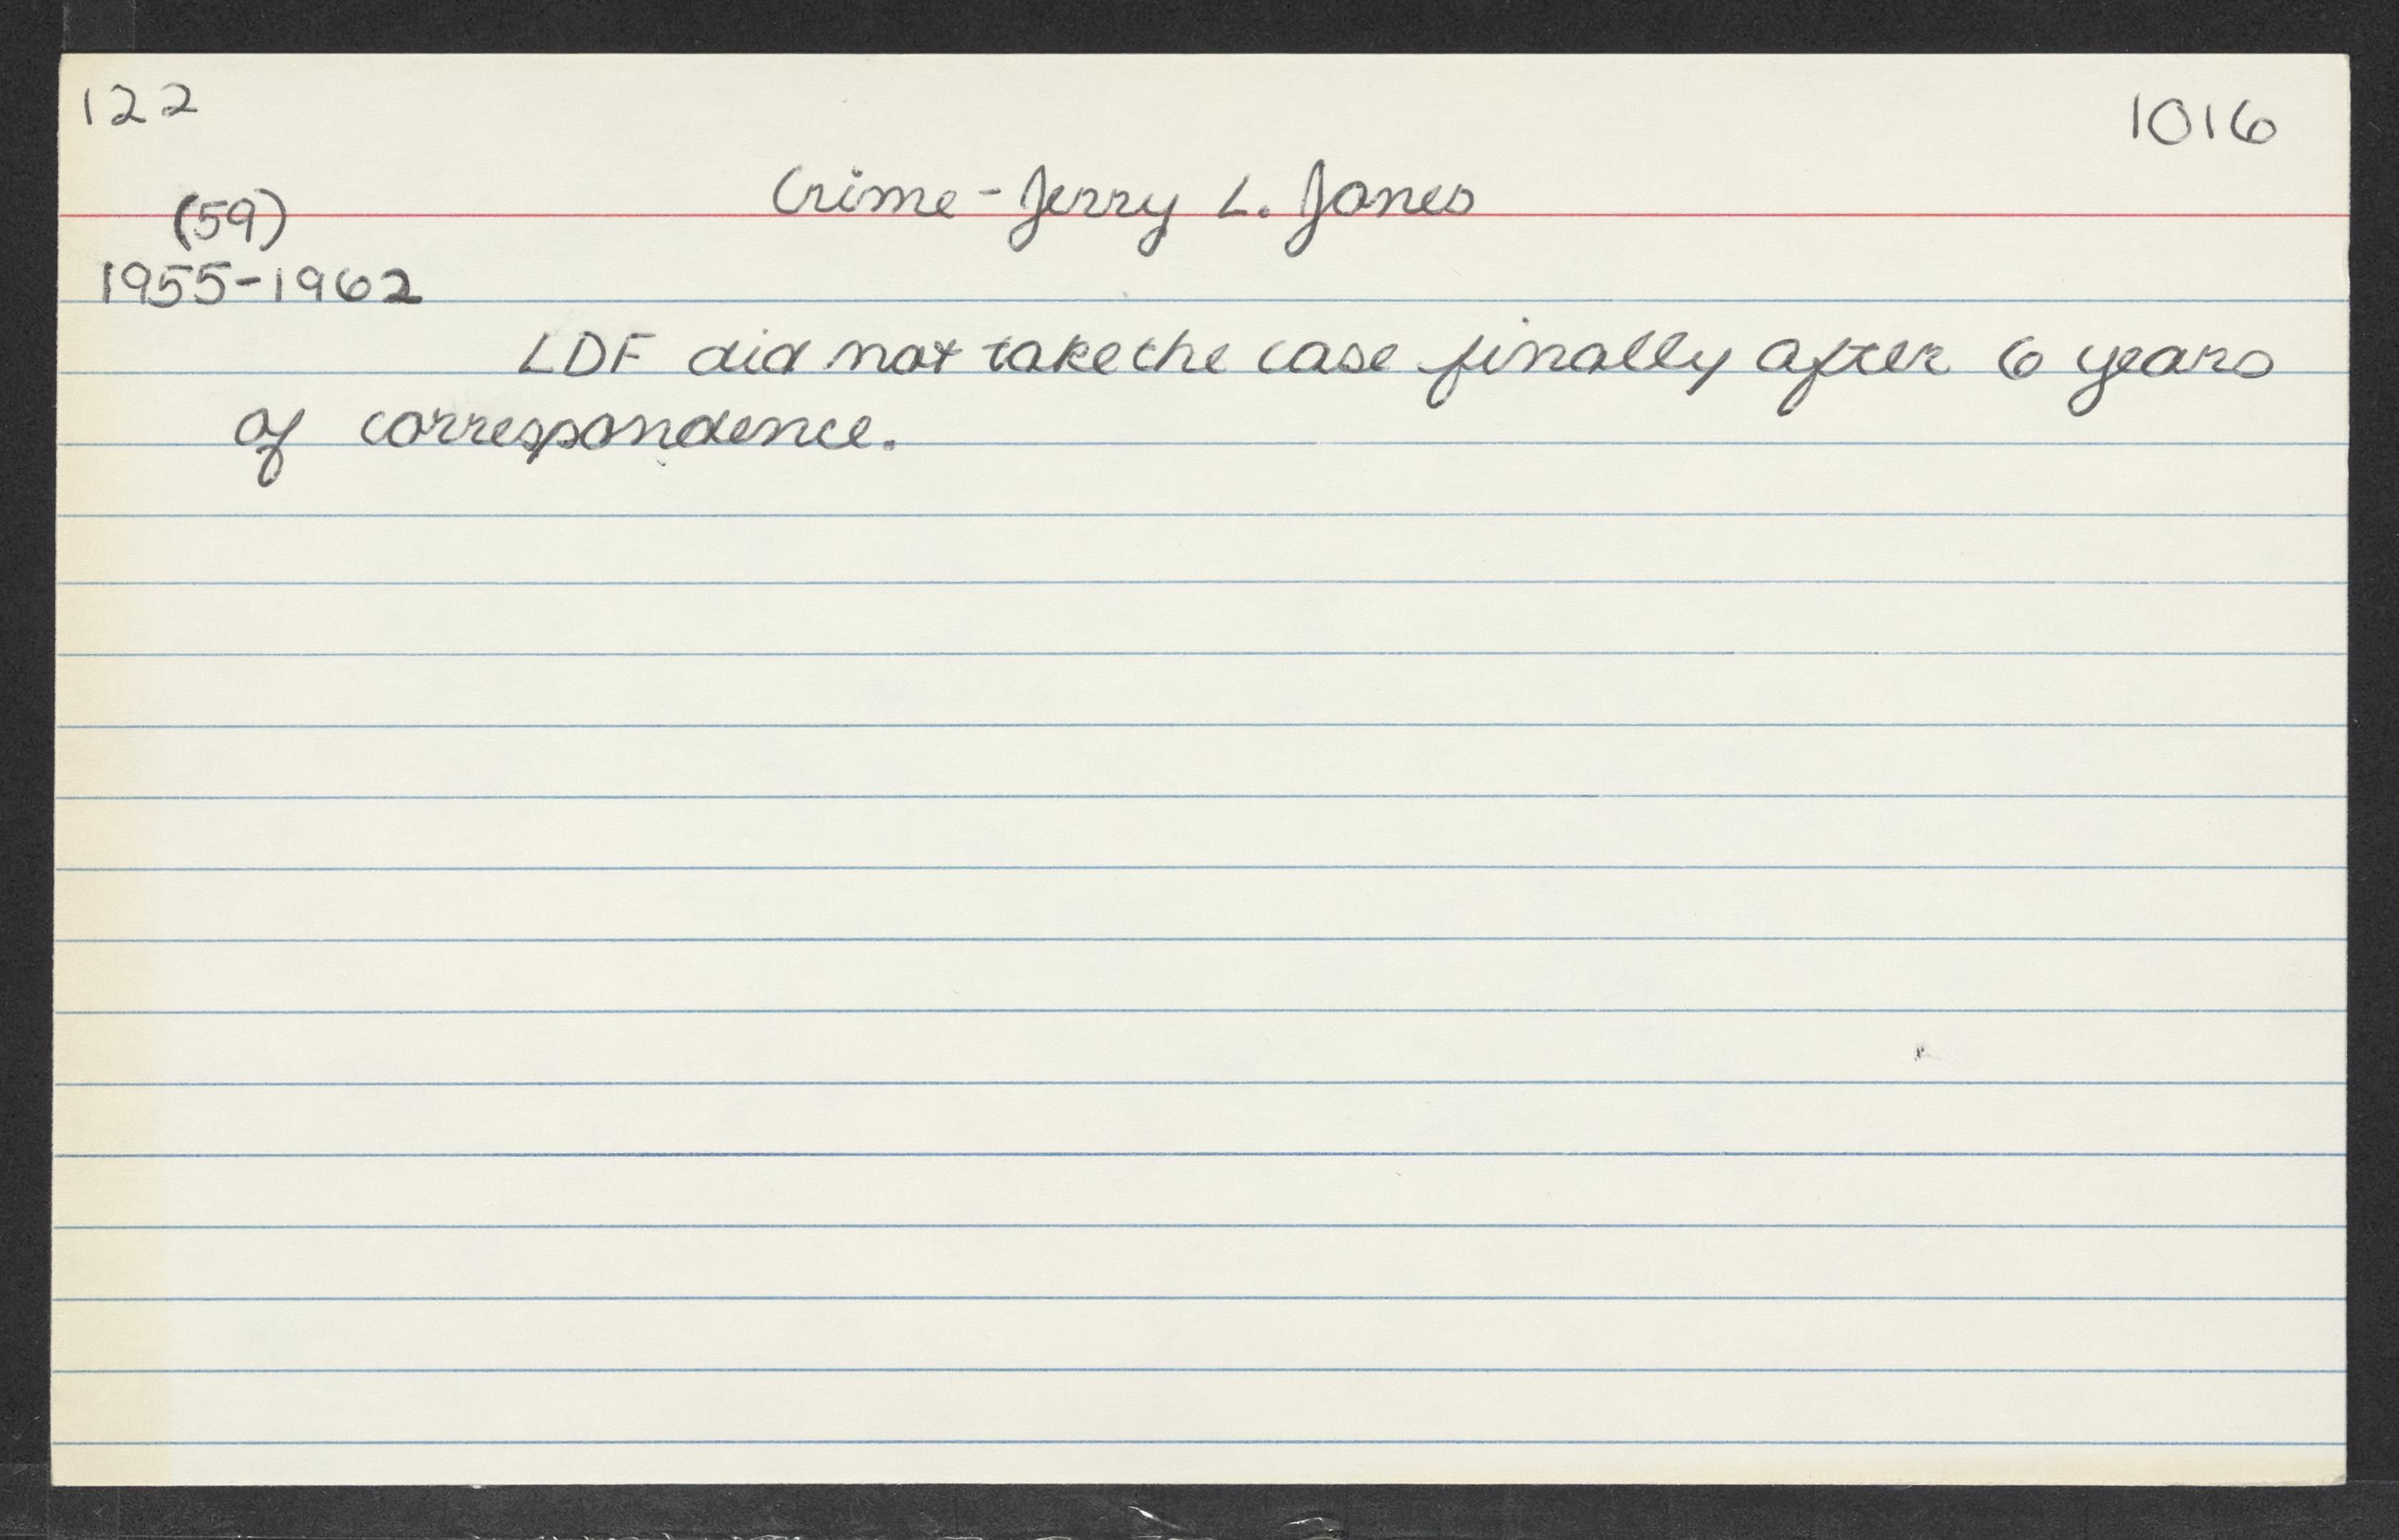 122
1016
Crime - Jerry L. Jones
(59)
1955-1962
LDF did not take the case finally after 6 years
of correspondence.